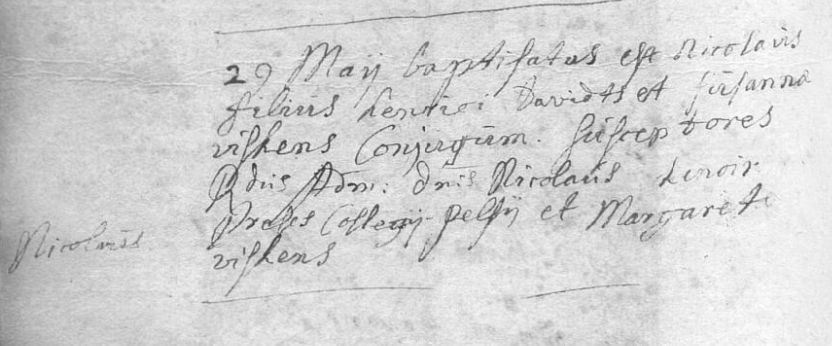 29 Maij baptisatus est Nicolaus
filius henrici Davidts et susanna
vishens Conjugum. susceptores
Rdus Adm: dnus Nicolaus Lenoir
Preses Collegij pelsij et Margareta
Nicolaus
vishens